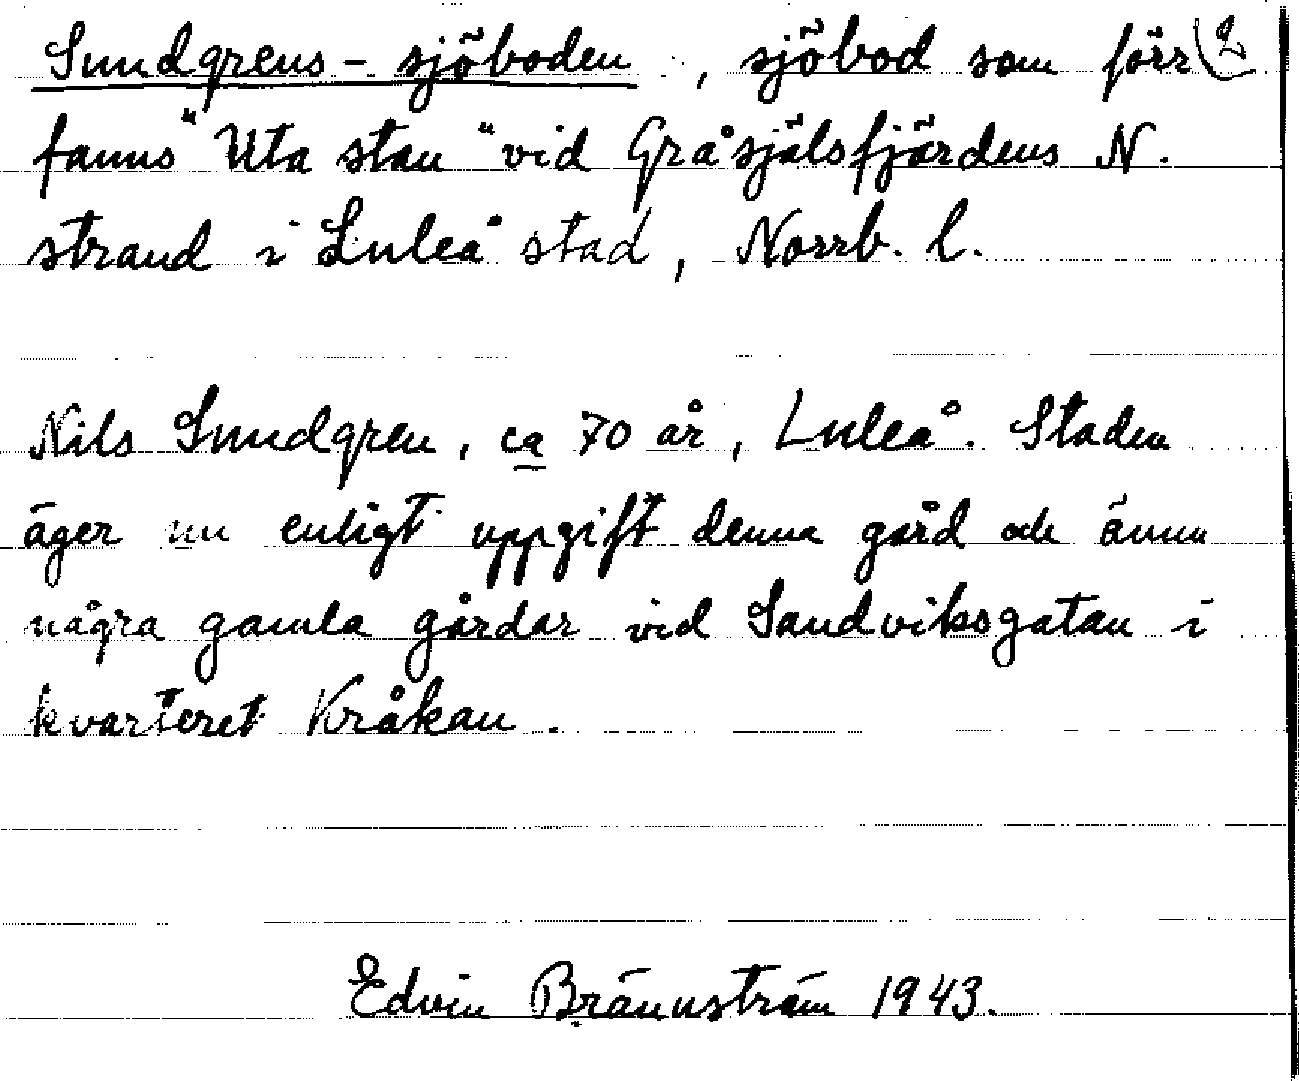 Sundgrens-sjöboden, sjöbod som förr (2
fanns "Uta stan" vid Gråsjälsfjärdens N.
strand i Luleå stad, Norrb. l.
Nils Sundgren, ca 70 år, Luleå. Staden
äger nu enligt uppgift denna gård och ännu
några gamla gårdar vid Sandviksgatan i
kvarteret Kråkan.
Edvin Brännström 1943.